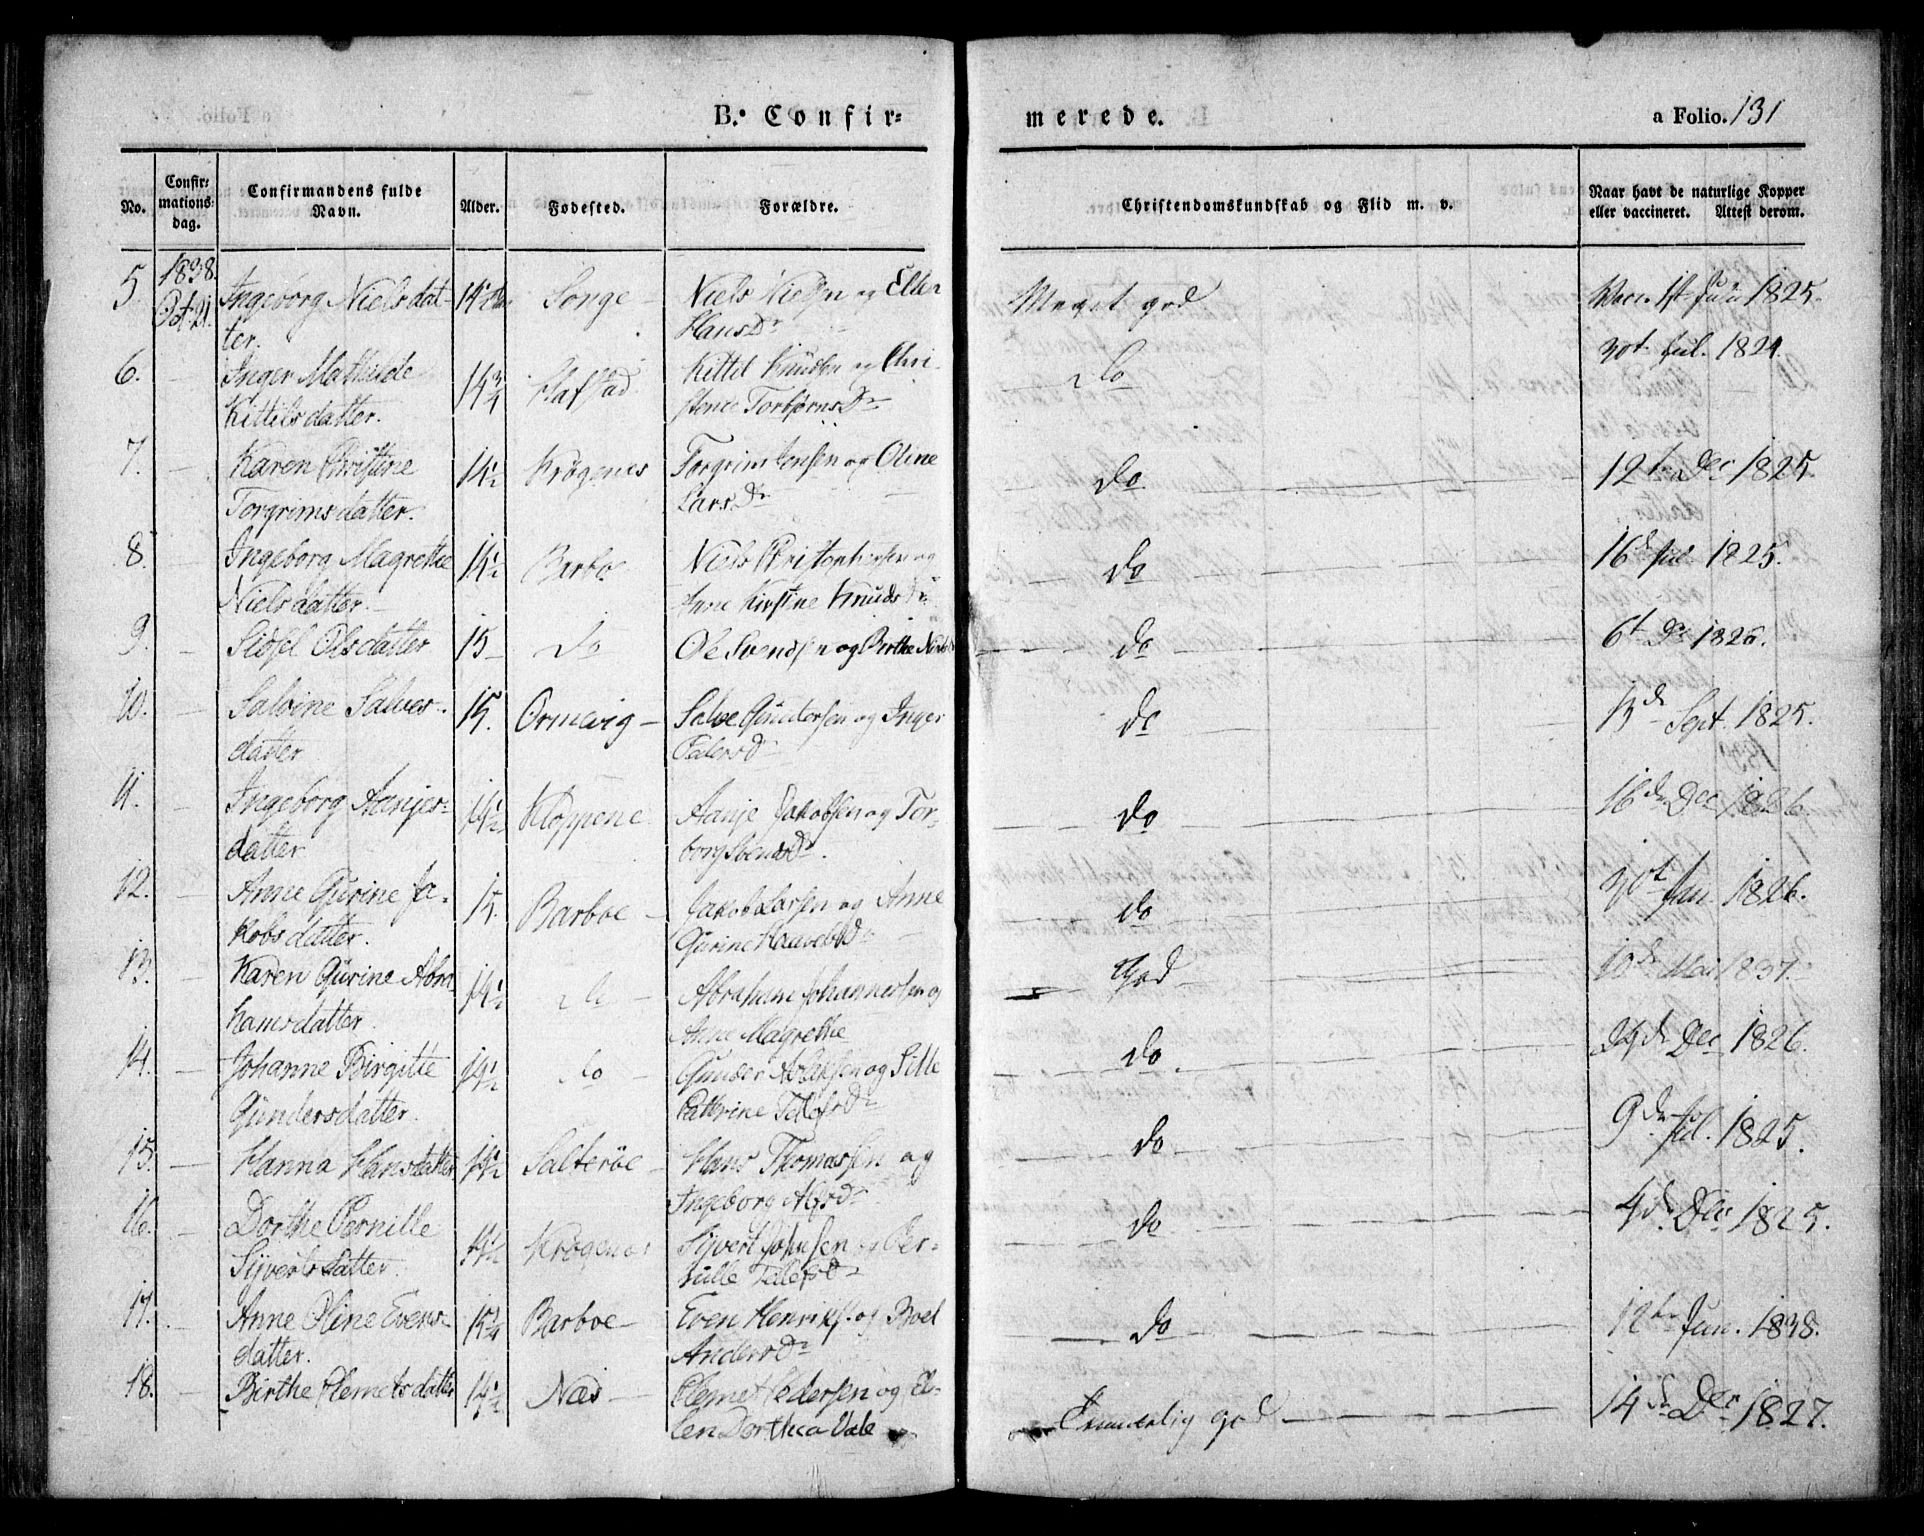 B. Confir=
merede.
a Folio. 131
No.
Confir=
mations=
dag.
Confirmandens fulde
Navn.
Alder.
Fødested.
Forældre.
Christendomskundskab og Flid m. v.
Naar havt de naturlige Kopper
eller vaccineret. Attest derom.
1838.
5. Oct. 21. Ingeborg Nielsdat-
ter.
Songe - Niels Nielsen og Ellen
Hans Dr
Meget god
Vacc. 1st Juli 1825.
6. - Inger Mathilde
Kittilsdatter.
14 3/4 Hafstad. Kittil Knudsen og Chri-
stence Torbjørns Dr
do
30t Jul. 1824.
7. - Karen Christine
Torgrimsdatter.
14 1/2 Krøgenes Torgrim Jensen og Oline
Lars Dr
do
12te Dec 1825.
8. Ingeborg Magrethe
Nielsdatter. -
14 1/2 Barbo Niels Christophersen og
Anne Kirstine Knuds Dr
do
16d Jul. 1825.
9. - Sidsel Olsdatter 15 - do Ole Svendsen og Berthe Niels
do
6t De 1826.
10. - Salvine Salves-
datter
15. Ormevig - Salve Gundersen og Inger
Peders D
do
13d Sept. 1825.
11. - Ingeborg Aanjer-
datter
14 1/2 Kloppene Aanje Jakobsen og Tor-
borg Svends Dr.
do
16de Dec 1826.
12. - Anne Gurine Ja-
kobsdatter.
15. Barboe - Jakob Larsen og Anne
Gurine
do
30t Jan. 1826.
13. - Karen Gurine Abra
hamsdatter.
14 1/2 do - Abraham Johannessen og
Anne Magrethe
God
10d Mai 1837.
14. - Johanne Birgitte
Gundersdatter.
14 1/2 do - Gunder Aslaksen og Sille
Cathrine Telefs Dr
do.
Dec 1826.
15. - Hanna Hansdatter 14 1/2 Salterøe - Hans Thomassen og
Ingeborg Alfs Dr
do
9de Jul. 1825.
16. - Dorthe Pernille
Sijvertsdatter.
14 1/2 Krøgenes Sijvert Johnsen og Per-
nille Telefs Dr
do
4d. Dec 1825.
17. - Anne Oline Evens-
datter.
15 1/4 Barboe - Even Henriks. og Boel
Anders Dr
do
12te Jun. 1838.
18. - Birthe Clemetsdatter 14 1/2 Næs - Clemet Pedersen og El-
len Dorthea Vale
Temmelig god
14de Dec 1827.